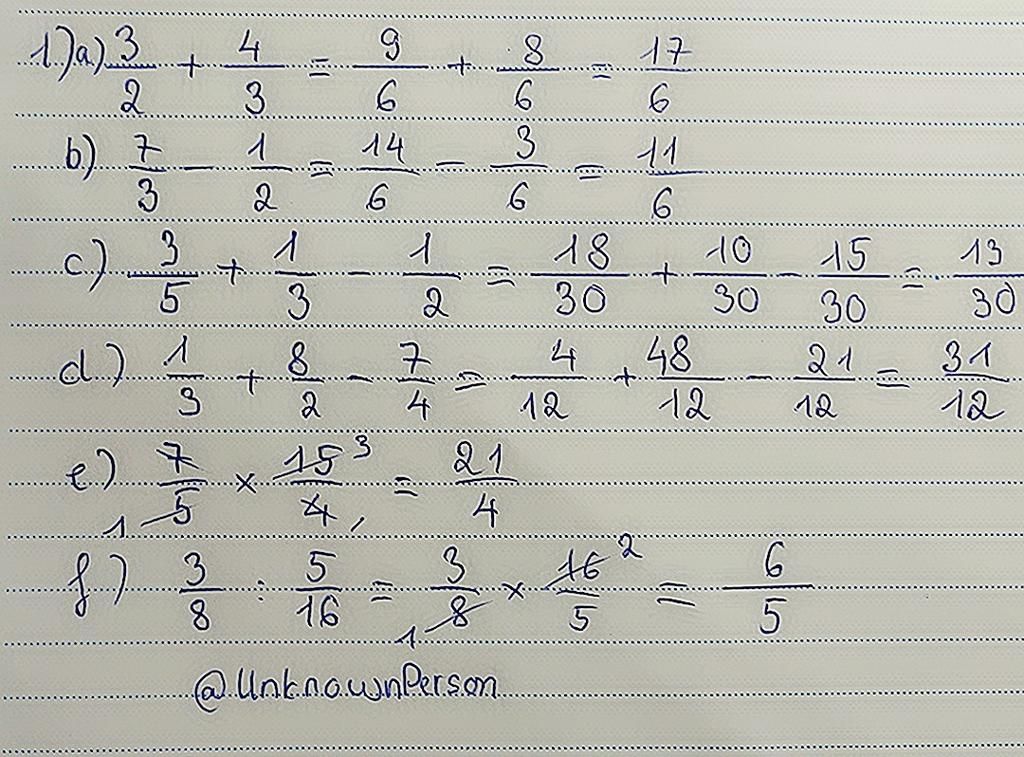 1.)a) 3/2 + 4/3 = 9/6 + 8/6 = 17/6
b) 7/3 - 1/2 = 14/6 - 3/6 = 11/6
c) 3/5 + 1/3 - 1/2 = 18/30 + 10/30 - 15/30 = 13/30
d) 1/3 + 8/2 - 7/4 = 4/12 + 48/12 - 21/12 = 31/12
e) 7/5 1 × 15/4 3 = 21/4
f) 3/8 : 5/16 = 3/8 1 × 16/5 2 = 6/5
@UnknownPerson